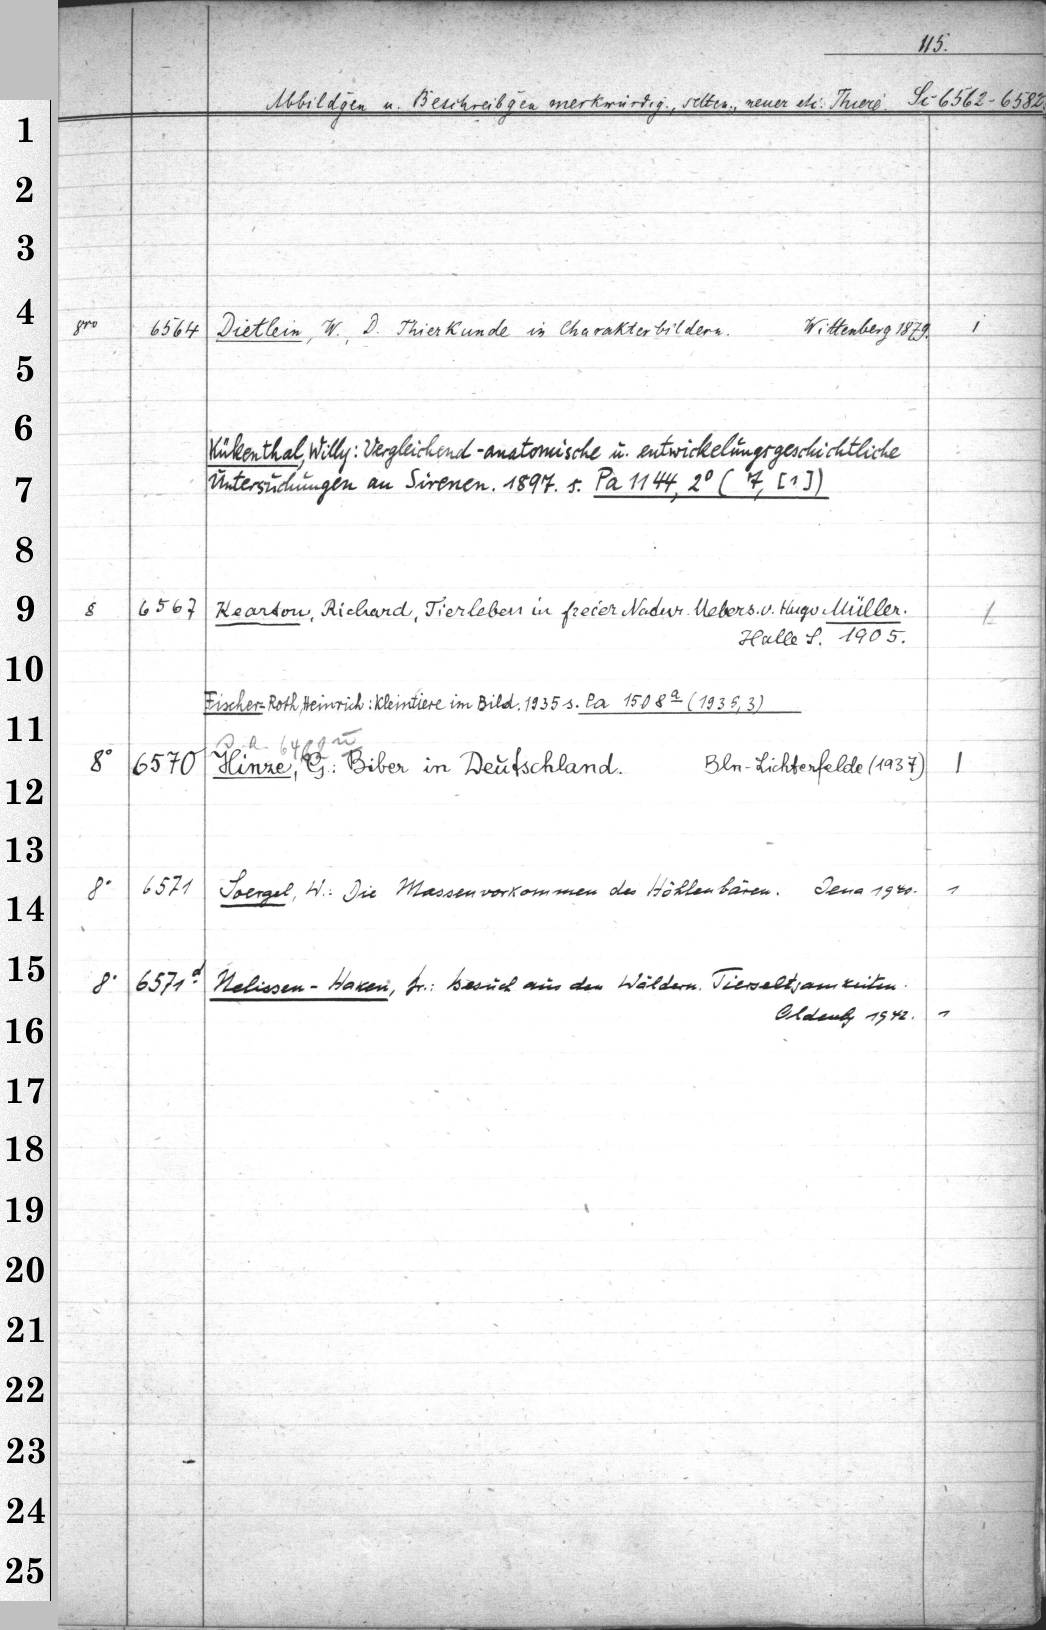 115.
Abbildgen u. Beschreibgen merkwürdig., selten., neuer etc. Thiere. Sc 6562-6582
1
2
3
4
8vo 6564 Dietlein, W., D. Thierkunde in Charakterbildern. Wittenberg 1879. 1
5
6
Kükenthal, Willy: Vergleichend-anatomische u. entwickelungsgeschichtliche
7
Untersuchungen an Sirenen. 1897. s. Pa 1144, 2° (7, [1])
8
9
8 6567 Kearton, Richard, Tierleben in freier Natur. Uebers. v. Hugo Müller. 1
Halle S. 1905.
10
Fischer-Roth, Heinrich: Kleintiere im Bild. 1935 s. Pa 1508a (1935,3)
11
8° 6570 Hinze, G.: Biber in Deutschland. Bln-Lichterfelde (1937) 1
12
13
8° 6571 Soergel, W.: Die Massenvorkommen des Höhlenbären. Jena 1940. 1
14
15
8° 6571d Nelissen-Haken, Br.: Besuch aus den Wäldern. Tierseltsamkeiten.
16
Oldenbg 1942. 1
17
18
19
20
21
22
23
24
25